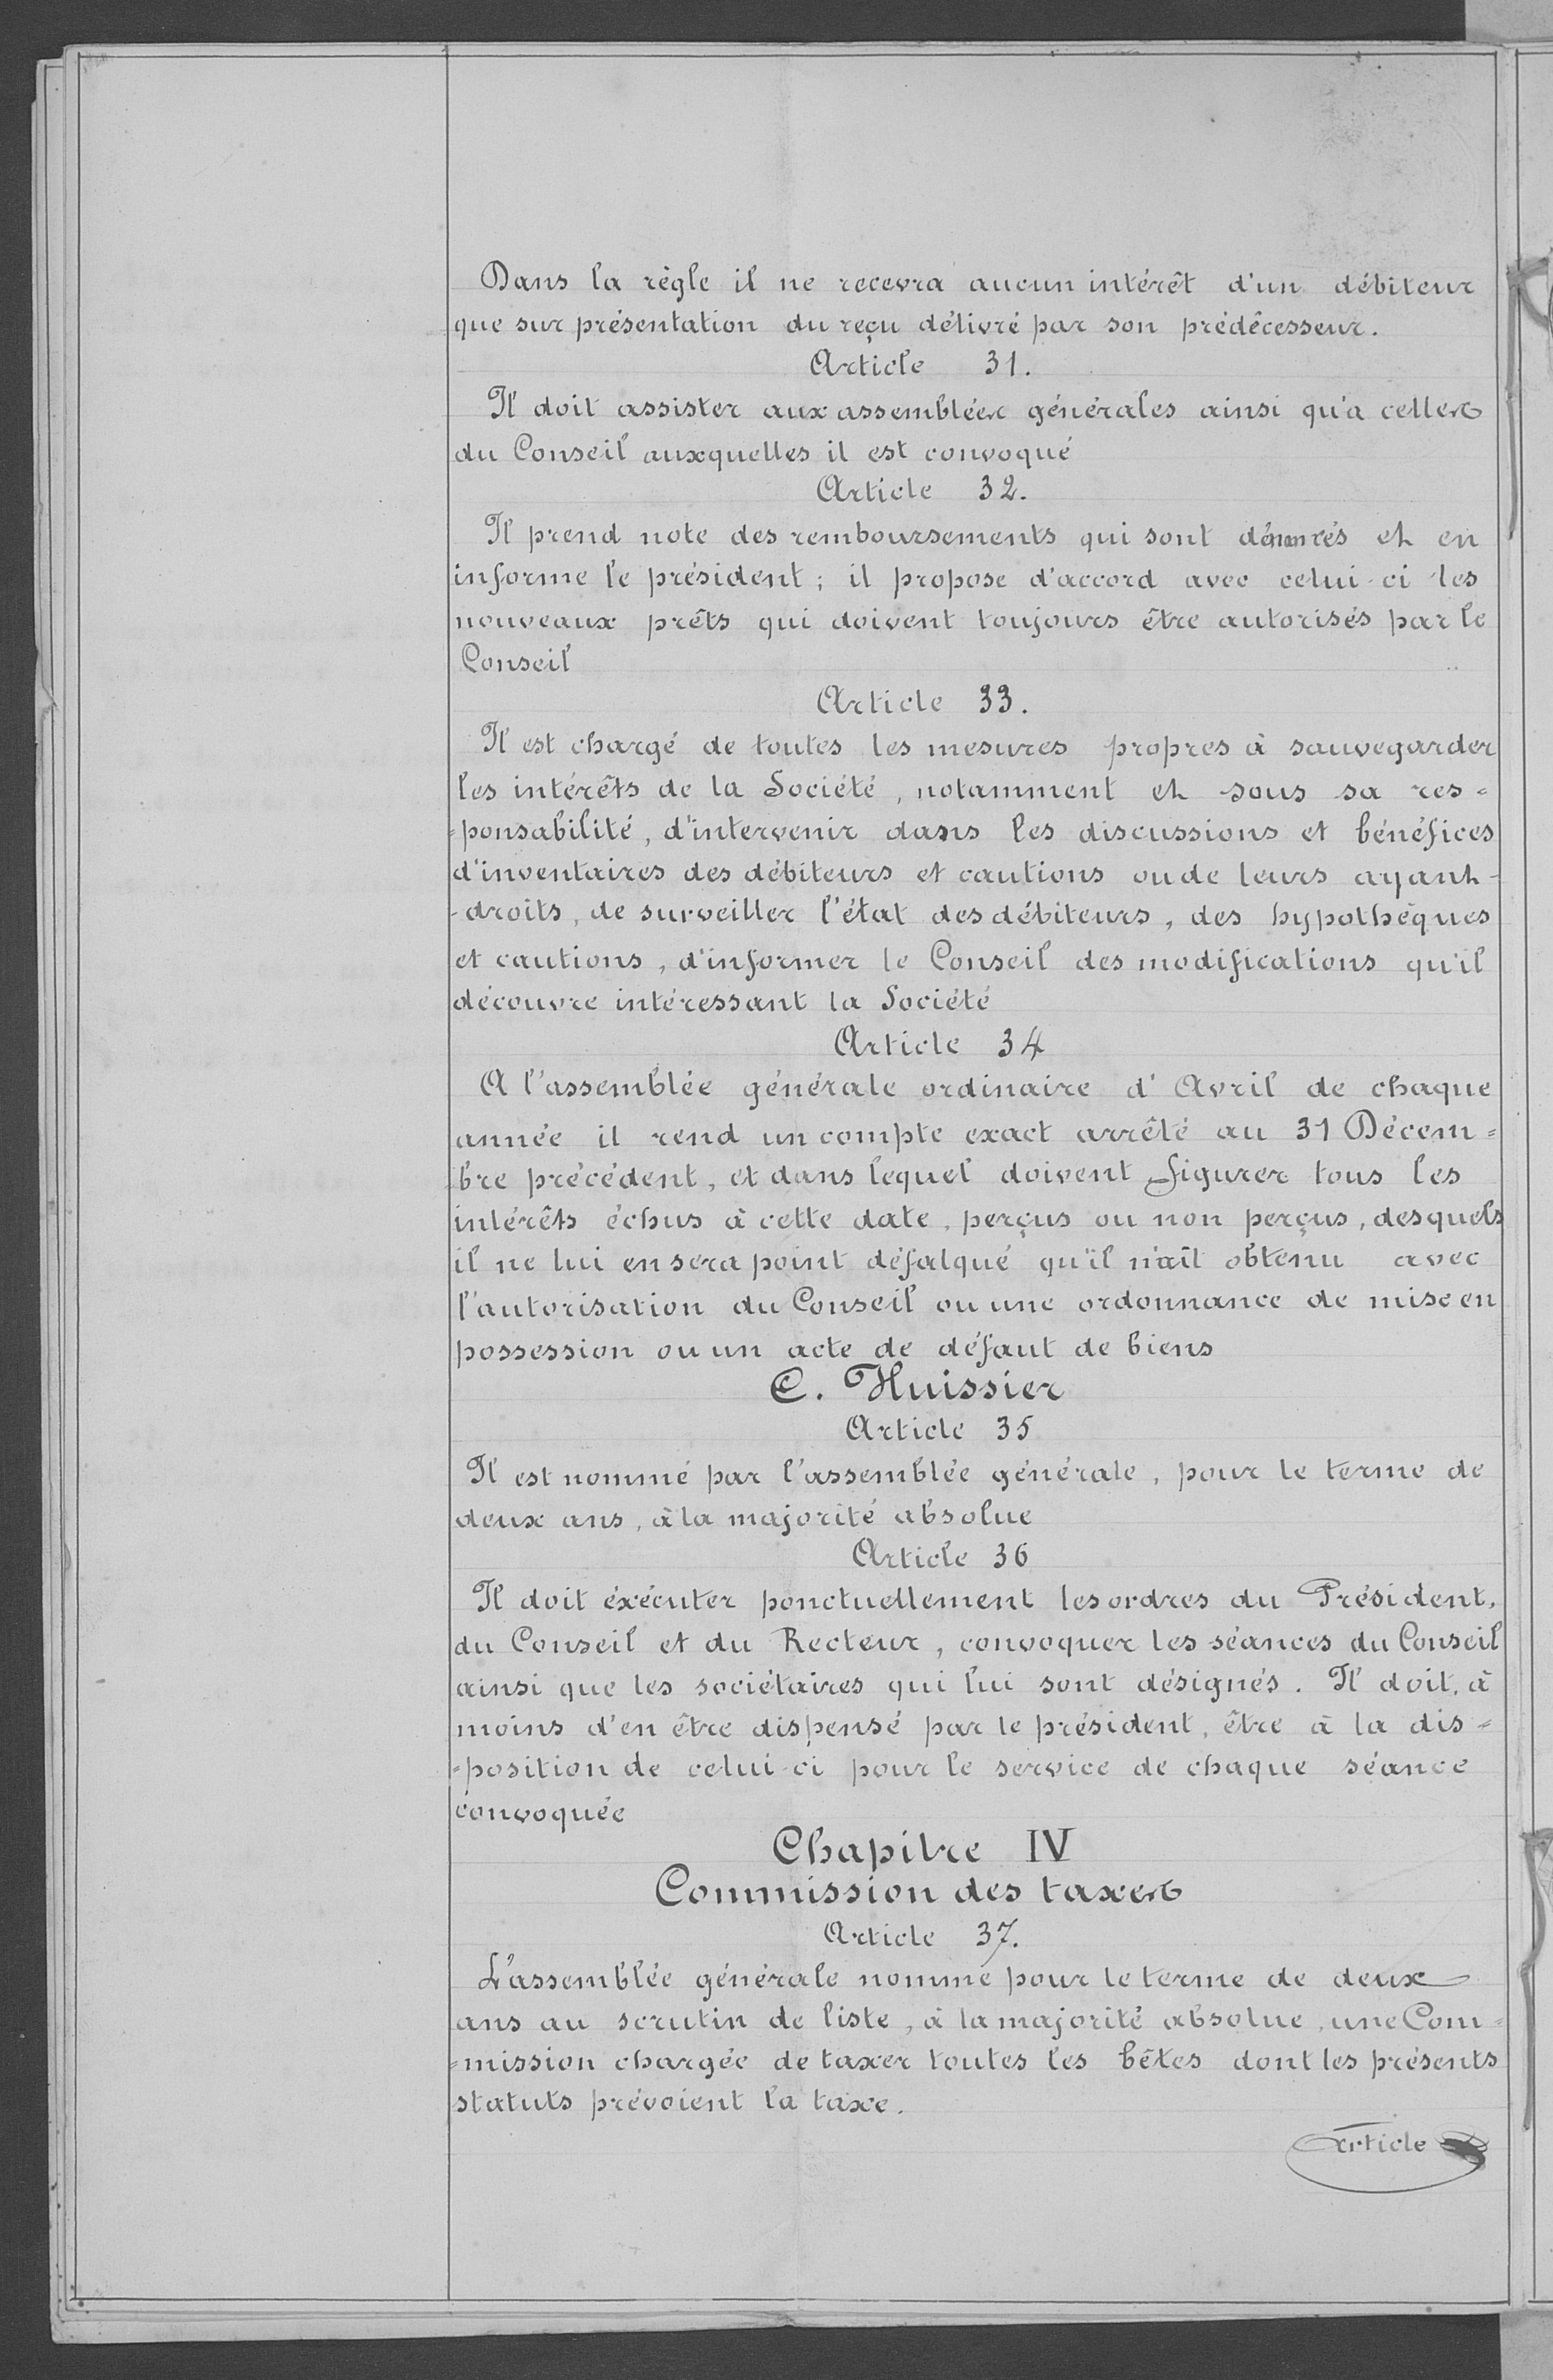 Dans la règle il ne recevra aucun intérêt d'un débiteur
que sur présentation du reçu délivré par son prédécesseur.
Article 31.
Il doit assister aux assemblées générales ainsi qu'a celles
du Conseil auxquelles il est convoqué
Article 32.
Il prend note des remboursements qui sont dénoncés et en
informe le président ; il propose d'accord avec celui-ci les
nouveaux prêts qui doivent toujours être autorisés par le
Conseil
Article 33.
Il est chargé de toutes les mesures propres à sauvegarder
les intérêts de la Société, notamment et sous sa res=
=ponsabilité, d'intervenir dans les discussions et bénéfices
d'inventaires des débiteurs et cautions ou de leurs ayant-
-droits, de surveiller l'état des débiteurs, des hypothèques
et cautions, d'informer le Conseil des modifications qu'il
découvre intéressant la Société
Article 34
A l'assemblée générale ordinaire d'Avril de chaque
année il rend un compte exact arrêté au 31 Décem=
=bre précédent, et dans lequel doivent figurer tous les
intérêts échus à cette date, perçus ou non perçus, desquels
il ne lui en sera point défalqué qu'il n'aît obtenu avec
l'autorisation du Conseil ou une ordonnance de mise en
possession ou un acte de défaut de biens
C. Huissier
Article 35
Il est nommé par l'assemblée générale, pour le terme de
deux ans, à la majorité absolue
Article 36
Il doit éxécuter ponctuellement les ordres du Président,
du Conseil et du Recteur, convoquer les séances du Conseil
ainsi que les sociétaires qui lui sont désignés. Il doit, à
moins d'en être dispensé par le président, être à la dis=
=position de celui-ci pour le service de chaque séance
convoquée
Chapitre IV
Commission des taxes
Article 37.
L'assemblée générale nomme pour le terme de deux
ans au scrutin de liste, à la majorité absolue, une Com=
=mission chargée de taxer toutes les bêtes dont les présents
statuts prévoient la taxe.
Article